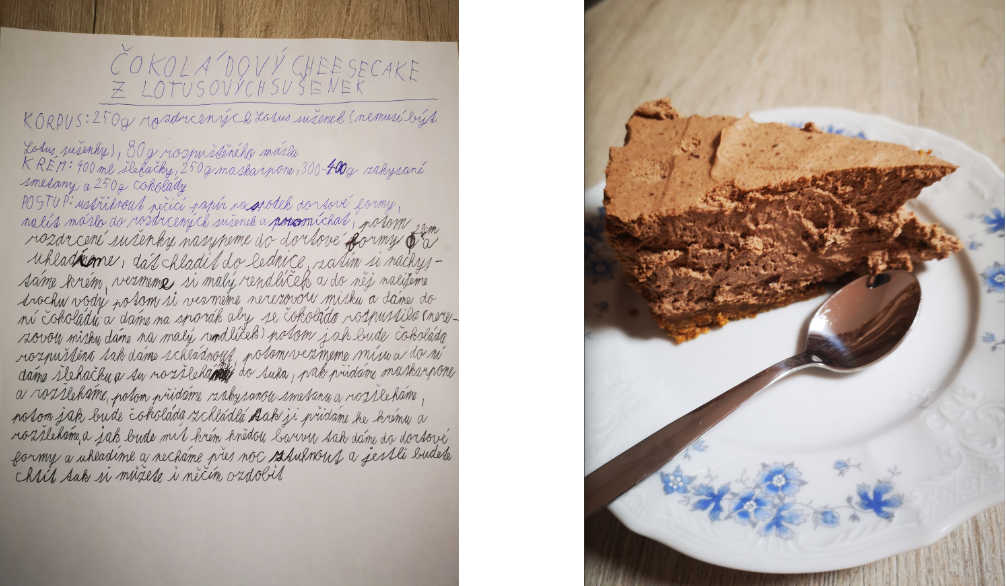 ČOKOLÁDOVÝ CHEESECAKE
Z LOTUSOVÝCH SUŠENEK
KORPUS: 250g rozdrcených Lotus sušenek (nemusí být
Lotus sušenky), 80g rozpuštěného másla
KRÉM: 400 ml šlehačky, 250g maskarpone, 300-400g zakysané
smetany a 250g čokolády
POSTUP: ustřihnout pečící papír na spodek dortové formy,
nalít máslo do rozdrcených sušenek a promíchat, potom
rozdrcené sušenky nasypeme do dortové formy a
uhladíme, dát chladit do lednice, zatím si nachys-
táme krém, vezmeme si malý rendlíček a do něj nalijeme
trochu vody potom si vezmeme nerezovou misku a dáme do
ní čokoládu a dáme na sporák aby se čokoláda rozpustila (nere-
zovou misku dáme na malý rendlíček) potom jak bude čokoláda
rozpuštěná tak dáme schladnout, potom vezmeme mísu a do ní
dáme šlehačku a tu rozšleháme do tuha, pak přidáme maskarpone
a rozšleháme, potom přidáme zakysanou smetanu a rozšleháme,
potom jak bude čokoláda zchladlá tak ji přidáme ke krému a
rozšleháme, a jak bude mít krém hnědou barvu tak dáme do dortové
formy a uhladíme a necháme přes noc ztuhnout a jestli budete
chtít tak si můžete i něčím ozdobit